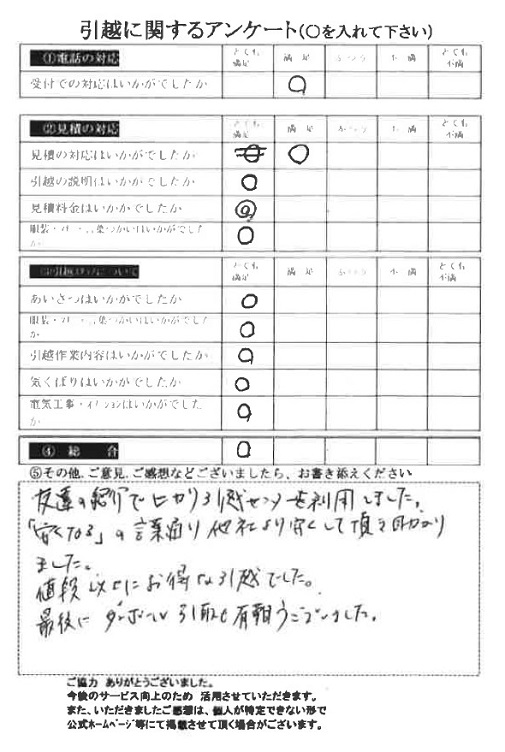 引越に関するアンケート(○を入れて下さい)
①電話の対応 とても満足 満足 ふつう 不満 とても不満
受付での対応はいかがでしたか ○
②見積の対応 とても満足 満足 ふつう 不満 とても不満
見積の対応はいかがでしたか ○
引越の説明はいかがでしたか ○
見積料金はいかかでしたか ◎
服装・マナー・言葉づかいはいかがでしたか ○
とても満足 満足 ふつう 不満 とても不満
あいさつはいかがでしたか ○
服装・マナー・言葉づかいはいかがでしたか ○
引越作業内容はいかがでしたか ○
気くばりはいかがでしたか ○
電気工事・オプションはいかがでしたか ○
④ 総 合 ○
⑤その他、ご意見、ご感想などございましたら、お書き添えください
友達の紹介でヒカリ引越センターを利用しました。
「安くなる」の言葉通り他社より安くして頂き助かり
ました。
値段以上にお得な引越でした。
最後にダンボール引取も有難うございました。
ご協力 ありがとうございました。
今後のサービス向上のため 活用させていただきます。
また、いただきましたご感想は、個人が特定できない形で
公式ホームページ等にて掲載させて頂く場合がございます。